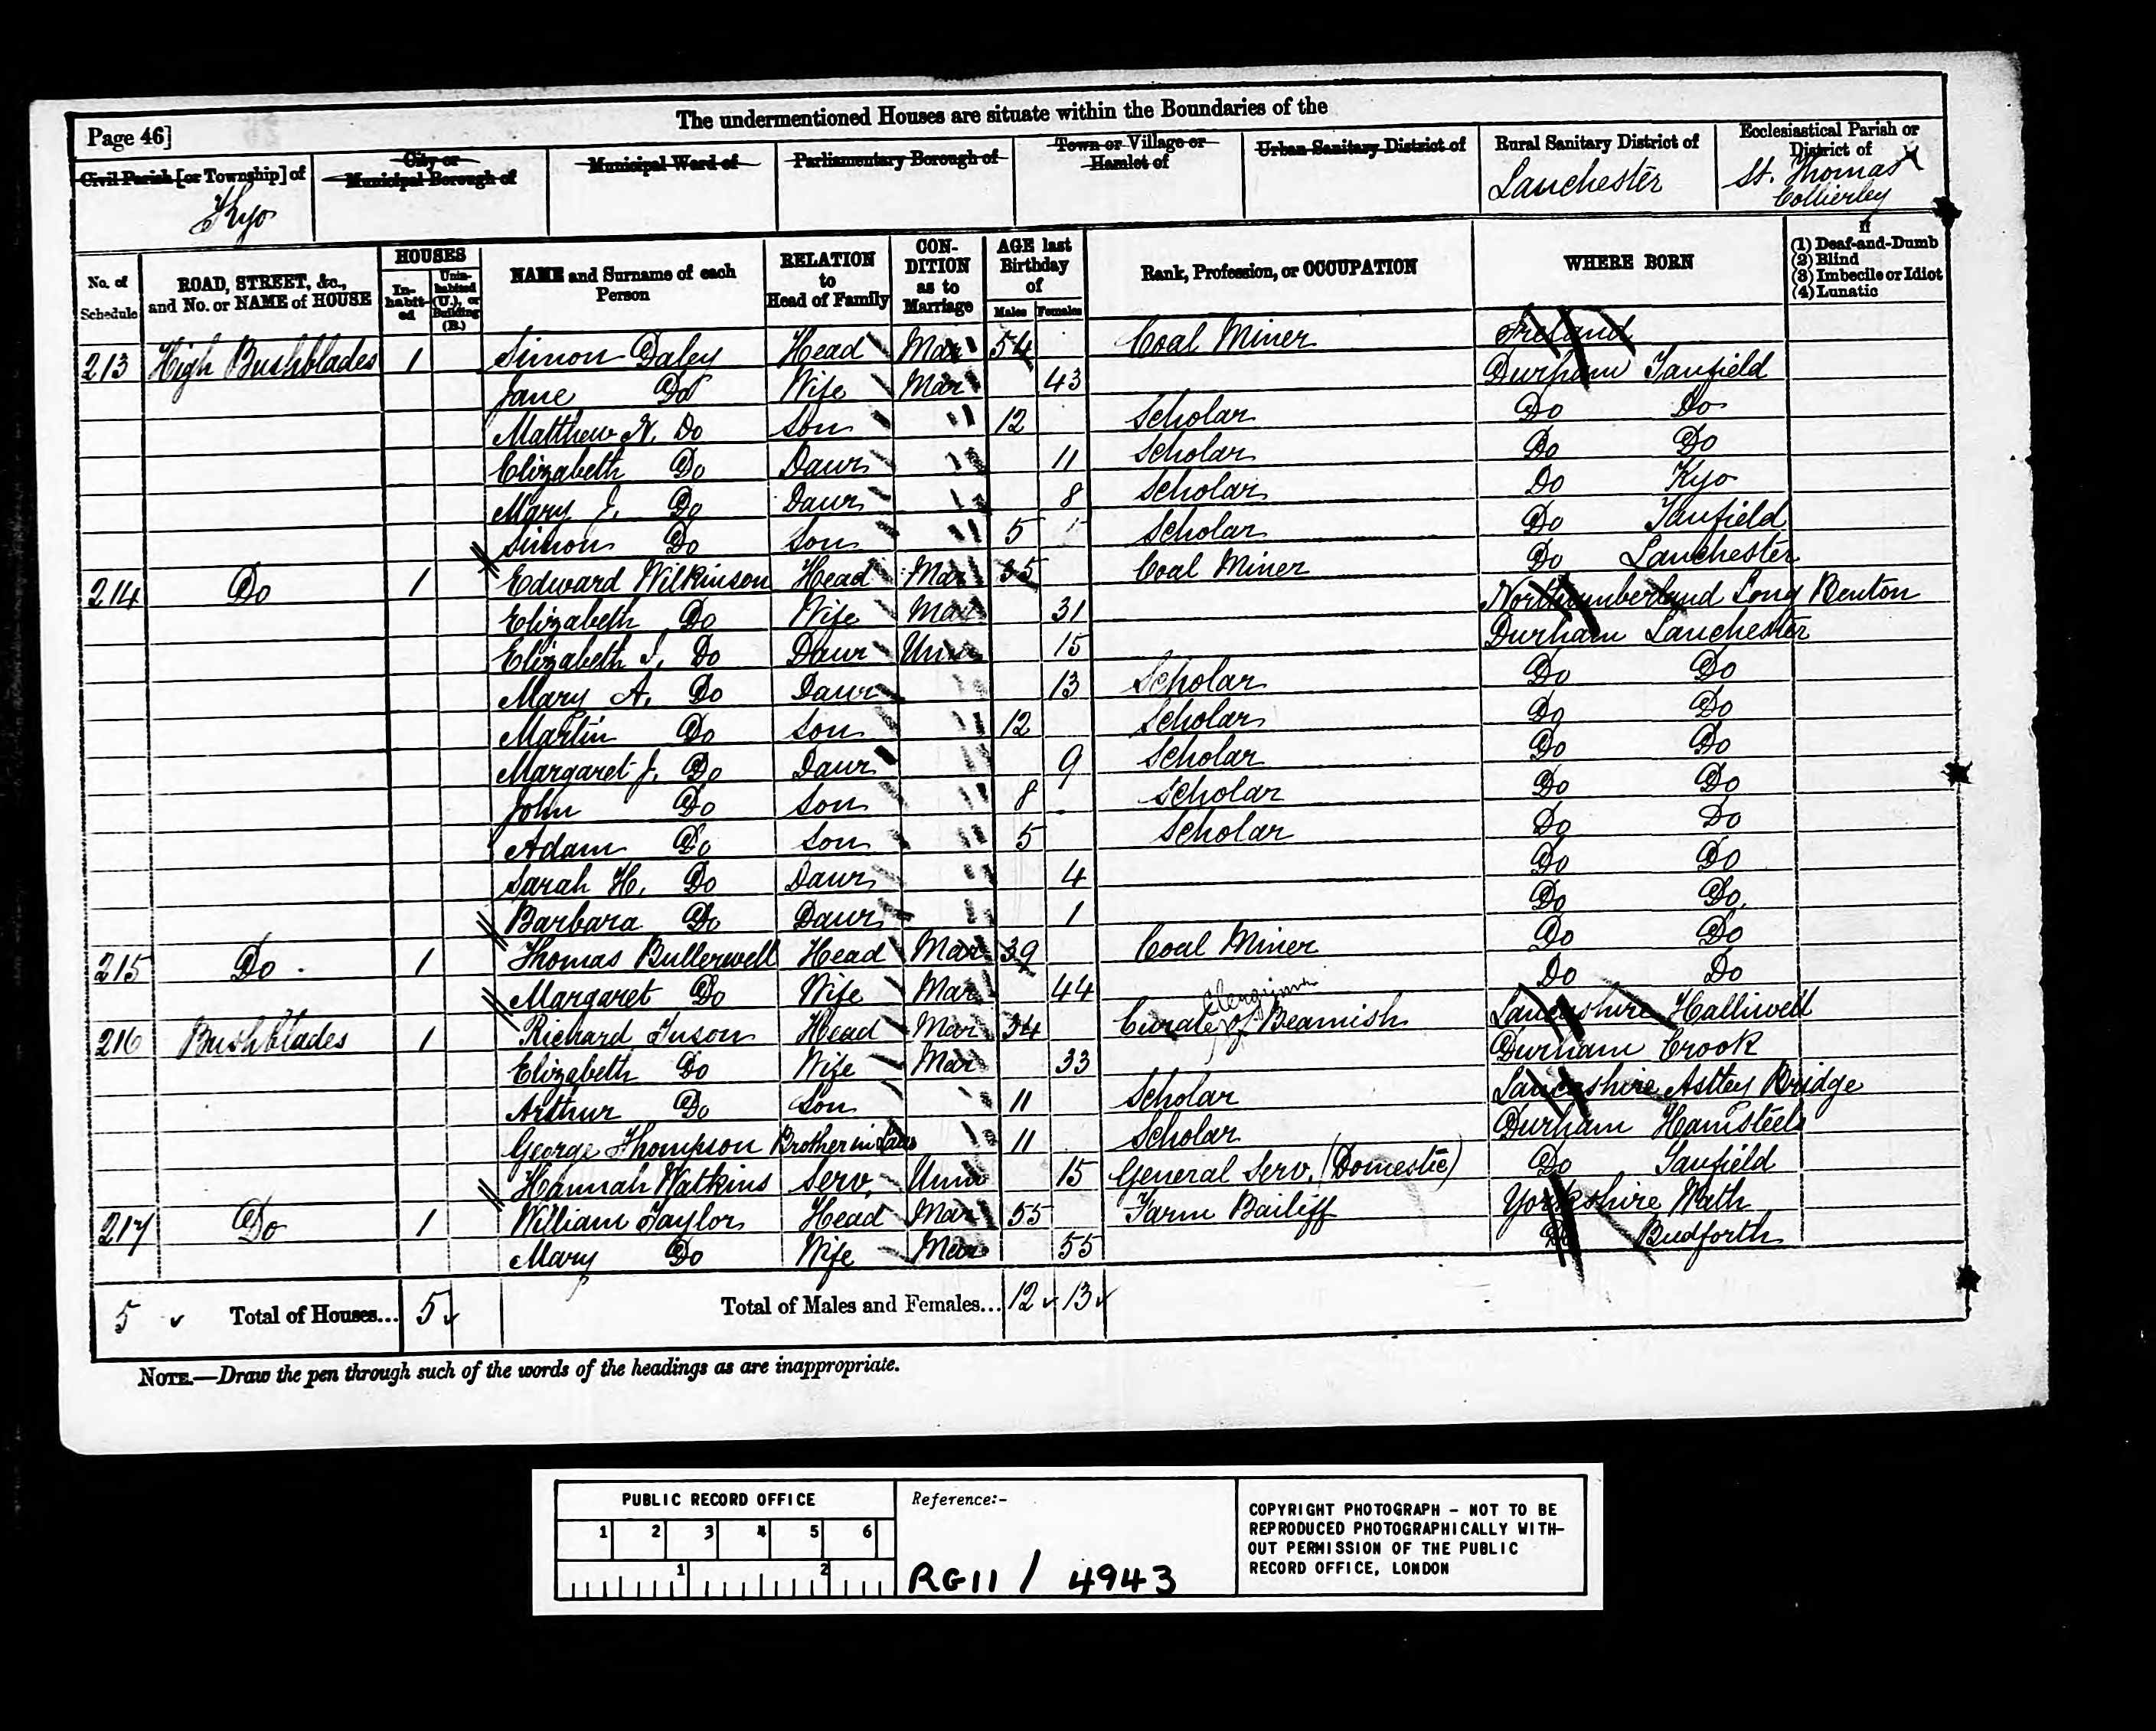 Page 46]
The undermentioned Houses are situate within the Boundaries of the
Civil Parish [or Township] of
City or Municipal Borough of
Municipal Ward of
Parliamentary Borough of
Town or Village or Hamlet of
Urban Sanitary District of
Rural Sanitary District of
Ecclesiastical Parish or District of
Kyo
Lanchester
St. Thomas Collierley
No. of Schedule
ROAD, STREET, &c., and No. or NAME of HOUSE
HOUSES
In-habit-ed
Unin-habited (U.), or Building (B.)
NAME and Surname of each Person
RELATION to Head of Family
CON-DITION as to Marriage
AGE last Birthday of
Males Females
Rank, Profession, or OCCUPATION
WHERE BORN
If
(1) Deaf-and-Dumb
(2) Blind
(3) Imbecile or Idiot
(4) Lunatic
213 High Bushblades 1 Simon Daley Head Mar 54 Coal Miner Ireland
Jane Do Wife Mar 43 Durham Tanfield
Matthew N. Do Son " 12 Scholar Do Do
Elizabeth Do Daur 11 Scholar Do Do
Mary J. Do Daur 8 Scholar Do Kyo
Simon Do Son " 5 Scholar Do Tanfield
214 Do 1 Edward Wilkinson Head Mar 35 Coal Miner Do Lanchester
Elizabeth Do Wife Mar 31 Northumberland Long Benton
Elizabeth I. Do Daur Unm 15 Durham Lanchester
Mary A. Do Daur 13 Scholar Do Do
Martin Do Son 12 Scholar Do Do
Margaret J. Do Daur 9 Scholar Do Do
John Do Son 8 Scholar Do Do
Adam Do Son 5 Scholar Do Do
Sarah H. Do Daur 4 Do Do
Barbara Do Daur 1 Do Do
215 Do 1 Thomas Bullerwell Head Mar 39 Coal Miner Do Do
Margaret Do Wife Mar 44 Do Do
Clergyman
216 Bushblades 1 Richard Tuson Head Mar 34 Curate of Beamish Lancashire Halliwell
Elizabeth Do Wife Mar 33 Durham Crook
Arthur Do Son 11 Scholar Lancashire Astley Bridge
George Thompson Brother in Law 11 Scholar Durham Hamsteels
Hannah Watkins Serv. Unm 15 General Serv. (Domestic) Do Tanfield
217 Do 1 William Taylor Head Mar 55 Farm Bailiff Yorkshire Wath
Mary Do Wife Mar 55 Do Budforth
5 Total of Houses... 5 Total of Males and Females... 12 13
NOTE.—Draw the pen through such of the words of the headings as are inappropriate.
PUBLIC RECORD OFFICE
1 2 3 4 5 6
1 2
Reference:-
RG11 / 4943
COPYRIGHT PHOTOGRAPH - NOT TO BE
REPRODUCED PHOTOGRAPHICALLY WITH-
OUT PERMISSION OF THE PUBLIC
RECORD OFFICE, LONDON